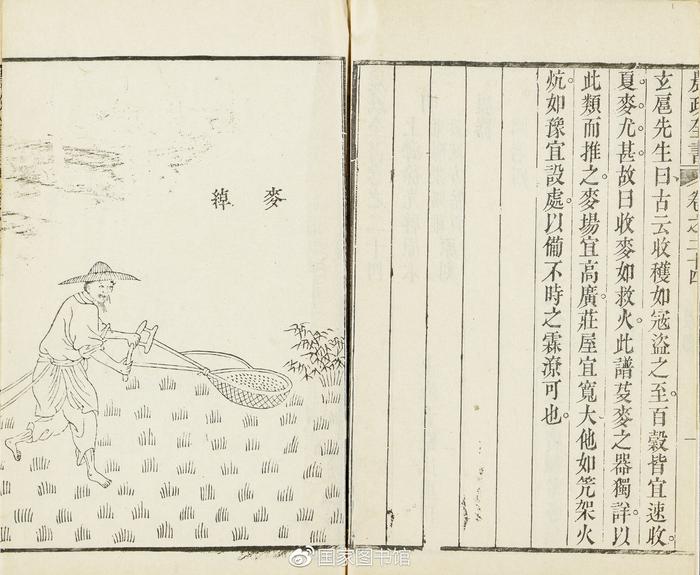 農政全書 卷之二十四 一
玄扈先生曰古云收穫如寇盜之至百穀皆宜速收
夏麥尤甚故曰收麥如救火此譜芟麥之器獨詳以
此類而推之麥場宜高廣莊屋宜寬大他如笐架火
炕如豫宜設處以備不時之霖潦可也
麥綽
国家图书馆